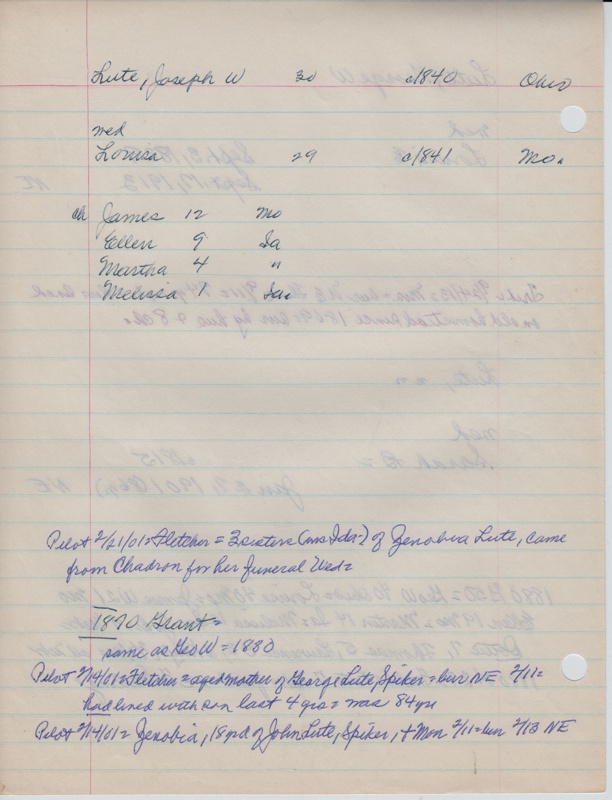 Lute, Joseph W 30 c1840 Ohio
med
Louisa 29 c1841 Mo.
ch James 12 Mo
Ellen 9 Ia
Martha 4 "
Melissa 1 Ia.
Pilot 2/21/01 = Fletcher = 2 sisters (mrs Ida-) of Zenobia Lute, came
from Chadron for her funeral Wed =
1870 Grant =
same as Geo W = 1880
Pilot 2/14/01 = Fletcher = aged mother of George Lute, Spiker = bur NE 2/11 =
had lived with son last 4 yrs = was 84 yrs
Pilot 2/14/01 = Zenobia, 18 yr d of John Lute, Spiker, + Mon 2/11 = bur 2/13 NE